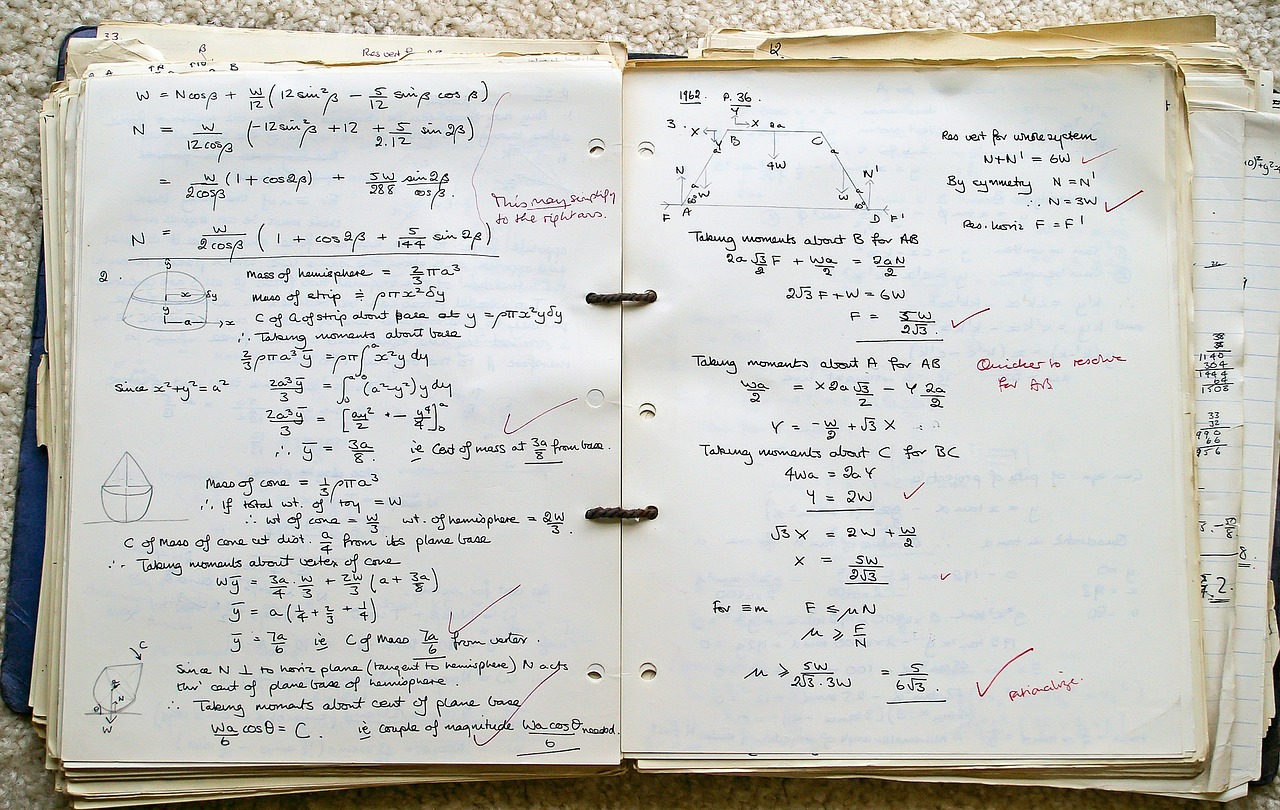 33.
β
Res vert
B
W = Ncosβ + W/12 (12 sin²β − 5/12 sinβ cosβ)
N = W/12cosβ (−12sin²β + 12 + 5/2.12 sin 2β)
= W/2cosβ (1 + cos2β) + 5W/288 sin2β/cosβ.
This may simplify
to the right ans.
N = W/2cosβ (1 + cos2β + 5/144 sin2β)
2.
y
Mass of hemisphere = 2/3 πa³
x δy
Mass of strip ≑ ρπx²δy
y
C of G of strip about base at y = ρπx²yδy
a x
∴ Taking moments about base
2/3 ρπa³ȳ = ρπ∫₀ᵃ x²y dy
Since x²+y²=a² 2a³ȳ/3 = ∫₀ᵃ (a²−y²) y dy
2a³ȳ/3 = [ay²/2 − y⁴/4]₀ᵃ
∴ ȳ = 3a/8 ie Cent of mass at 3a/8 from base.
Mass of cone = 1/3 ρπa³
∴ If total wt. of toy = W
∴ wt of cone = W/3 wt. of hemisphere = 2W/3.
C of Mass of cone at dist. a/4 from its plane base
∴ Taking moments about vertex of cone
Wȳ = 3a/4 . W/3 + 2W/3 (a + 3a/8)
ȳ = a(1/4 + 2/3 + 1/4)
ȳ = 7a/6 ie C of Mass 7a/6 from vertex.
C
Since N ⊥ to horiz plane (tangent to hemisphere) N acts
thro' cent of plane base of hemisphere.
N
∴ Taking moments about cent of plane base
W
Wa/6 cosθ = C. ie couple of magnitude Wa cosθ/6 needed.
62.
1962. P. 36.
Y
3. X X 2a
B C
a a
4W
N N'
a a
W W
60° 60°
F A D F'
Res vert for whole system
N+N' = 6W
By symmetry N = N'
∴ N = 3W
Res. horiz F = F'
Taking moments about B for AB
2a √3/2 F + Wa/2 = 2aN/2
2√3 F + W = 6W
F = 5W/2√3.
Taking moments about A for AB
Quicker to resolve
for AB
Wa/2 = X 2a √3/2 − Y 2a/2
Y = −W/2 + √3 X
Taking moments about C for BC
4Wa = 2aY
Y = 2W
√3 X = 2W + W/2
X = 5W/2√3
For ≡m F ≤ μN
μ ≥ F/N
μ ≥ 5W/2√3.3W = 5/6√3.
rationalize.
38
38
1140
304
1444
64
1508
33
32
990
66
956